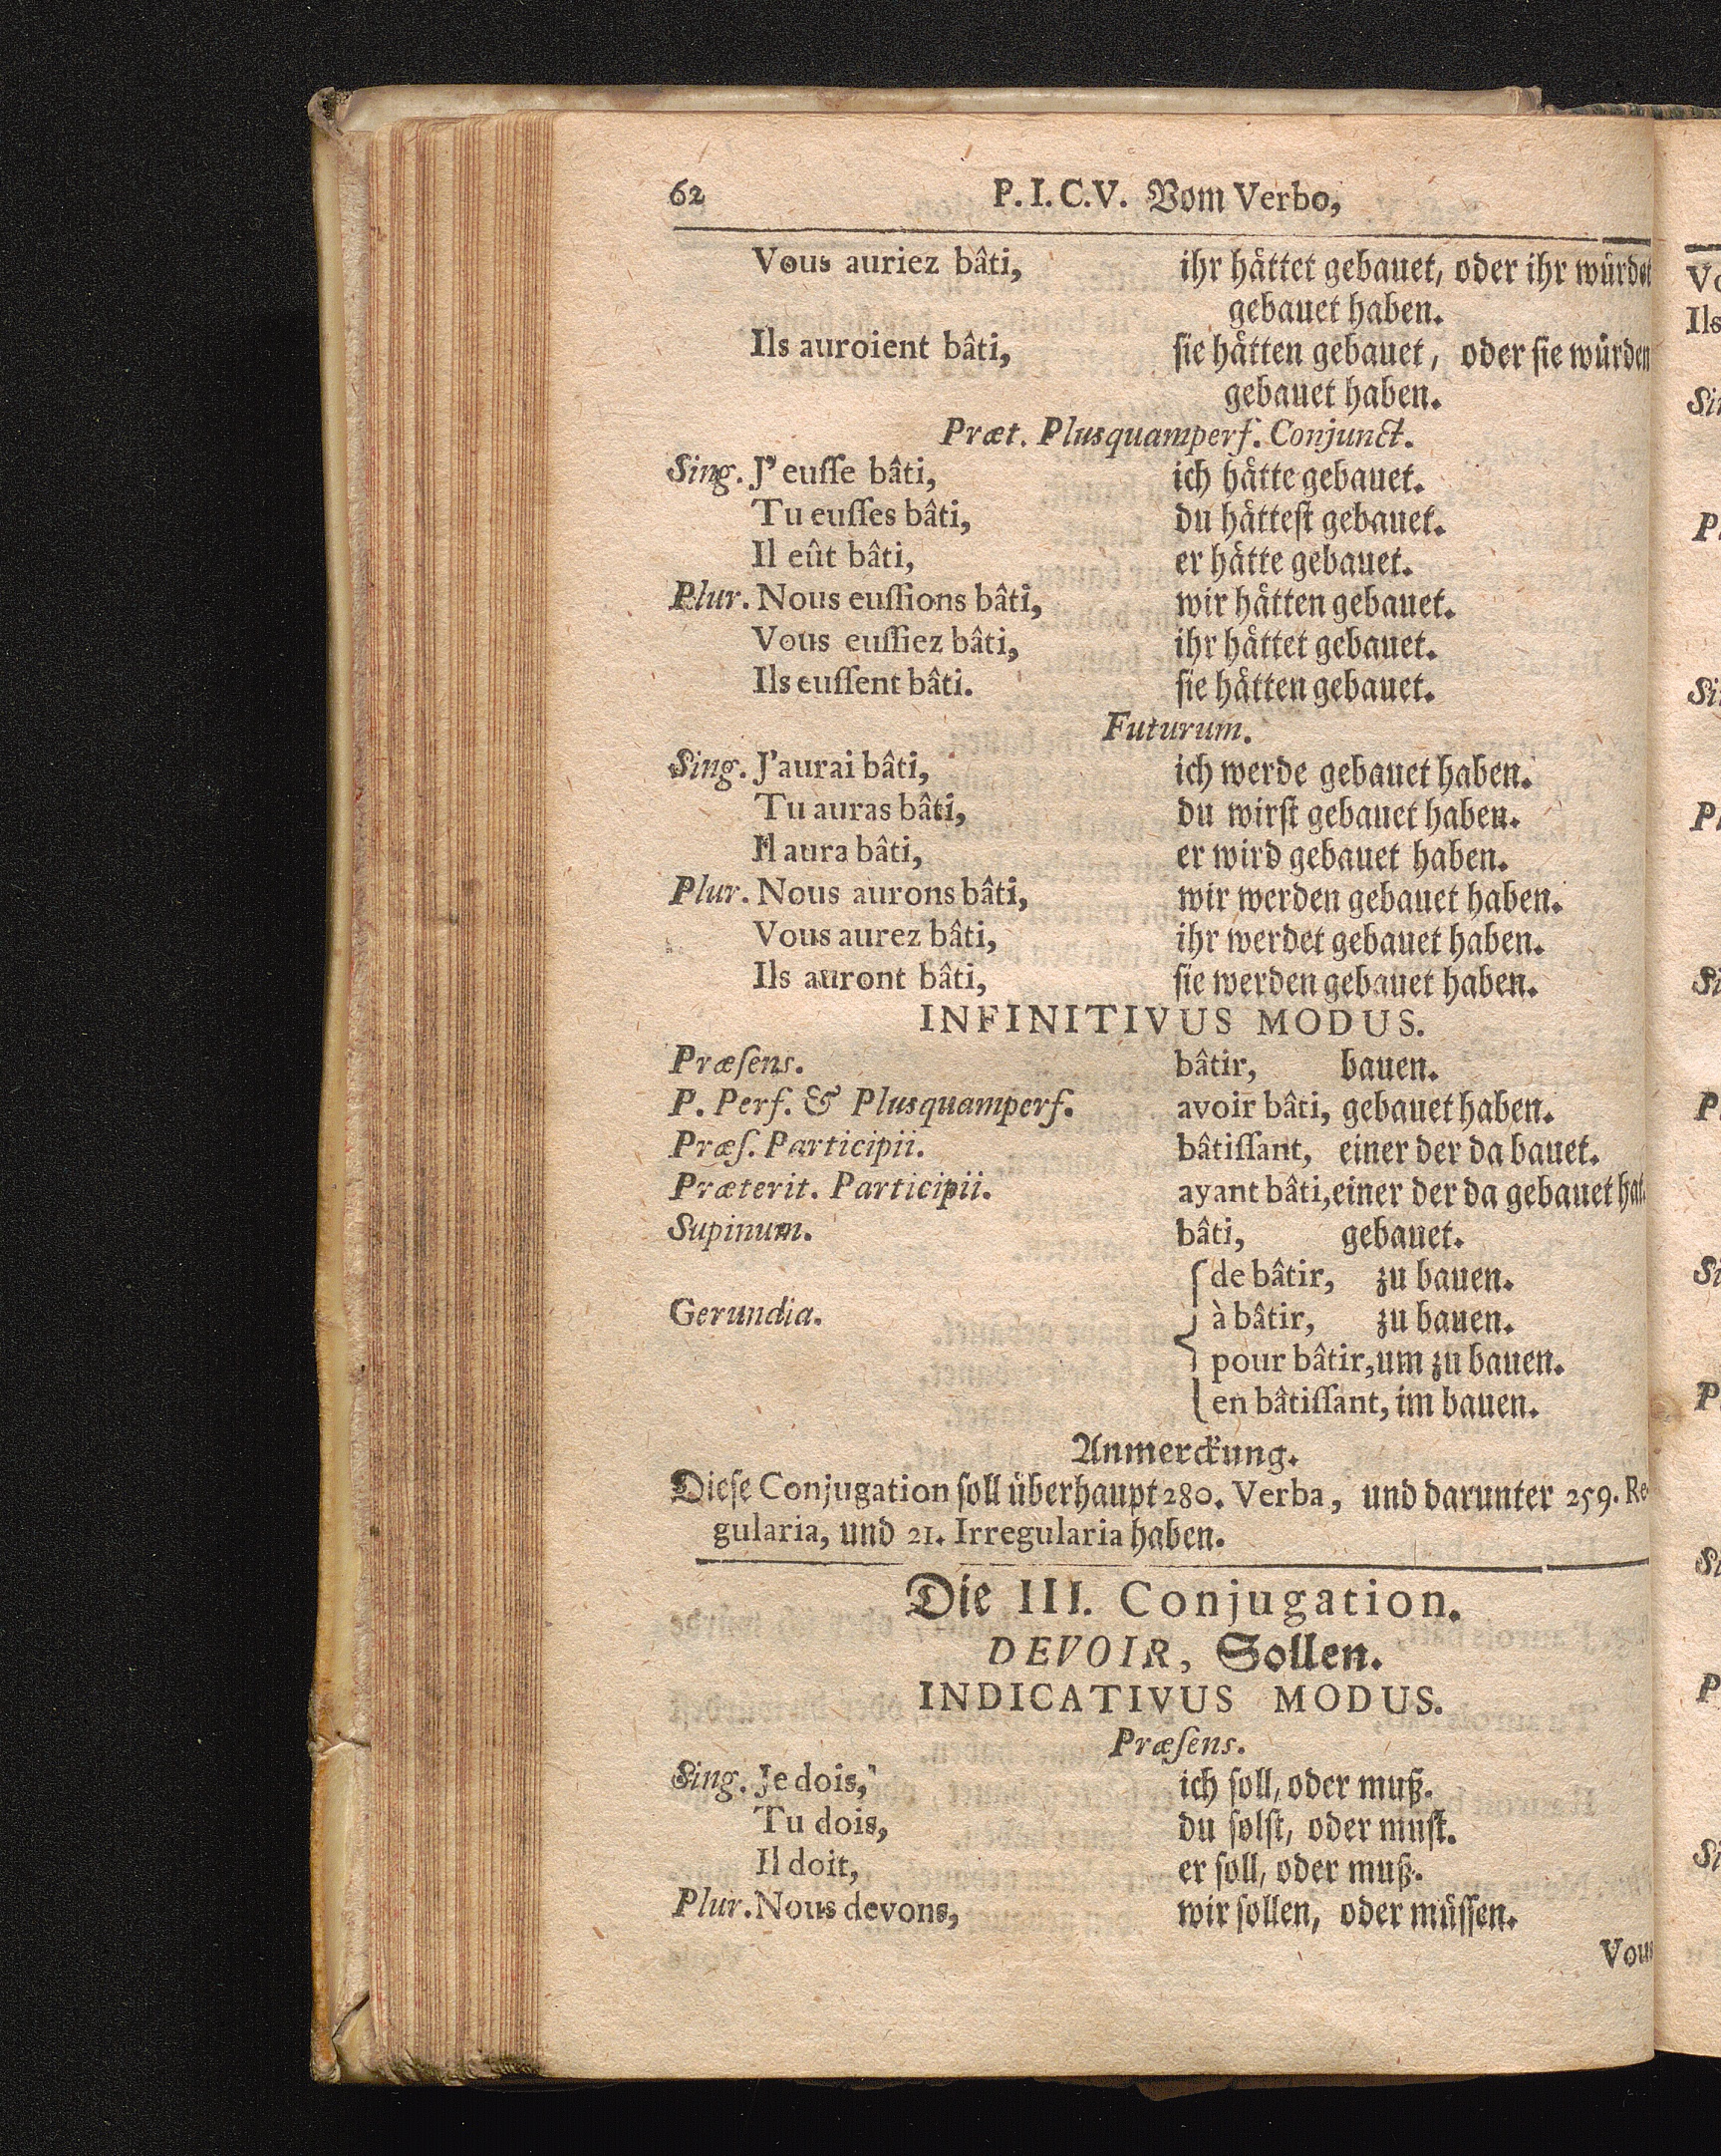 62 P. I. C. V. Vom Verbo,
Vous auriez bâti, ihr hättet gebauet, oder ihr würdet
gebauet haben.
Ils auroient bâti, sie hätten gebauet, oder sie würden
gebauet haben.
Præt. Plusquamperf. Conjunct.
Sing. J'eusse bâti, ich hätte gebauet.
Tu eusses bâti, du hättest gebauet.
Il eût bâti, er hätte gebauet.
Plur. Nous eussions bâti, wir hätten gebauet.
Vous eussiez bâti, ihr hättet gebauet.
Ils eussent bâti. sie hätten gebauet.
Futurum.
Sing. J'aurai bâti, ich werde gebauet haben.
Tu auras bâti, du wirst gebauet haben.
Il aura bâti, er wird gebauet haben.
Plur. Nous aurons bâti, wir werden gebauet haben.
Vous aurez bâti, ihr werdet gebauet haben.
Ils auront bâti, sie werden gebauet haben.
INFINITIVUS MODUS.
Præsens. bâtir, bauen.
P. Perf. & Plusquamperf. avoir bâti, gebauet haben.
Præs. Participii. bâtissant, einer der da bauet.
Præterit. Participii. ayant bâti, einer der da gebauet hat.
Supinum. bâti, gebauet.
de bâtir, zu bauen.
Gerundia. à bâtir, zu bauen.
pour bâtir, um zu bauen.
en bâtissant, im bauen.
Anmerckung.
Diese Conjugation soll überhaupt 280. Verba, und darunter 259. Re-
gularia, und 21. Irregularia haben.
Die III. Conjugation.
DEVOIR, Sollen.
INDICATIVUS MODUS.
Præsens.
Sing. Je dois, ich soll, oder muß.
Tu dois, du solst, oder must.
Il doit, er soll, oder muß.
Plur. Nous devons, wir sollen, oder müssen.
Vous